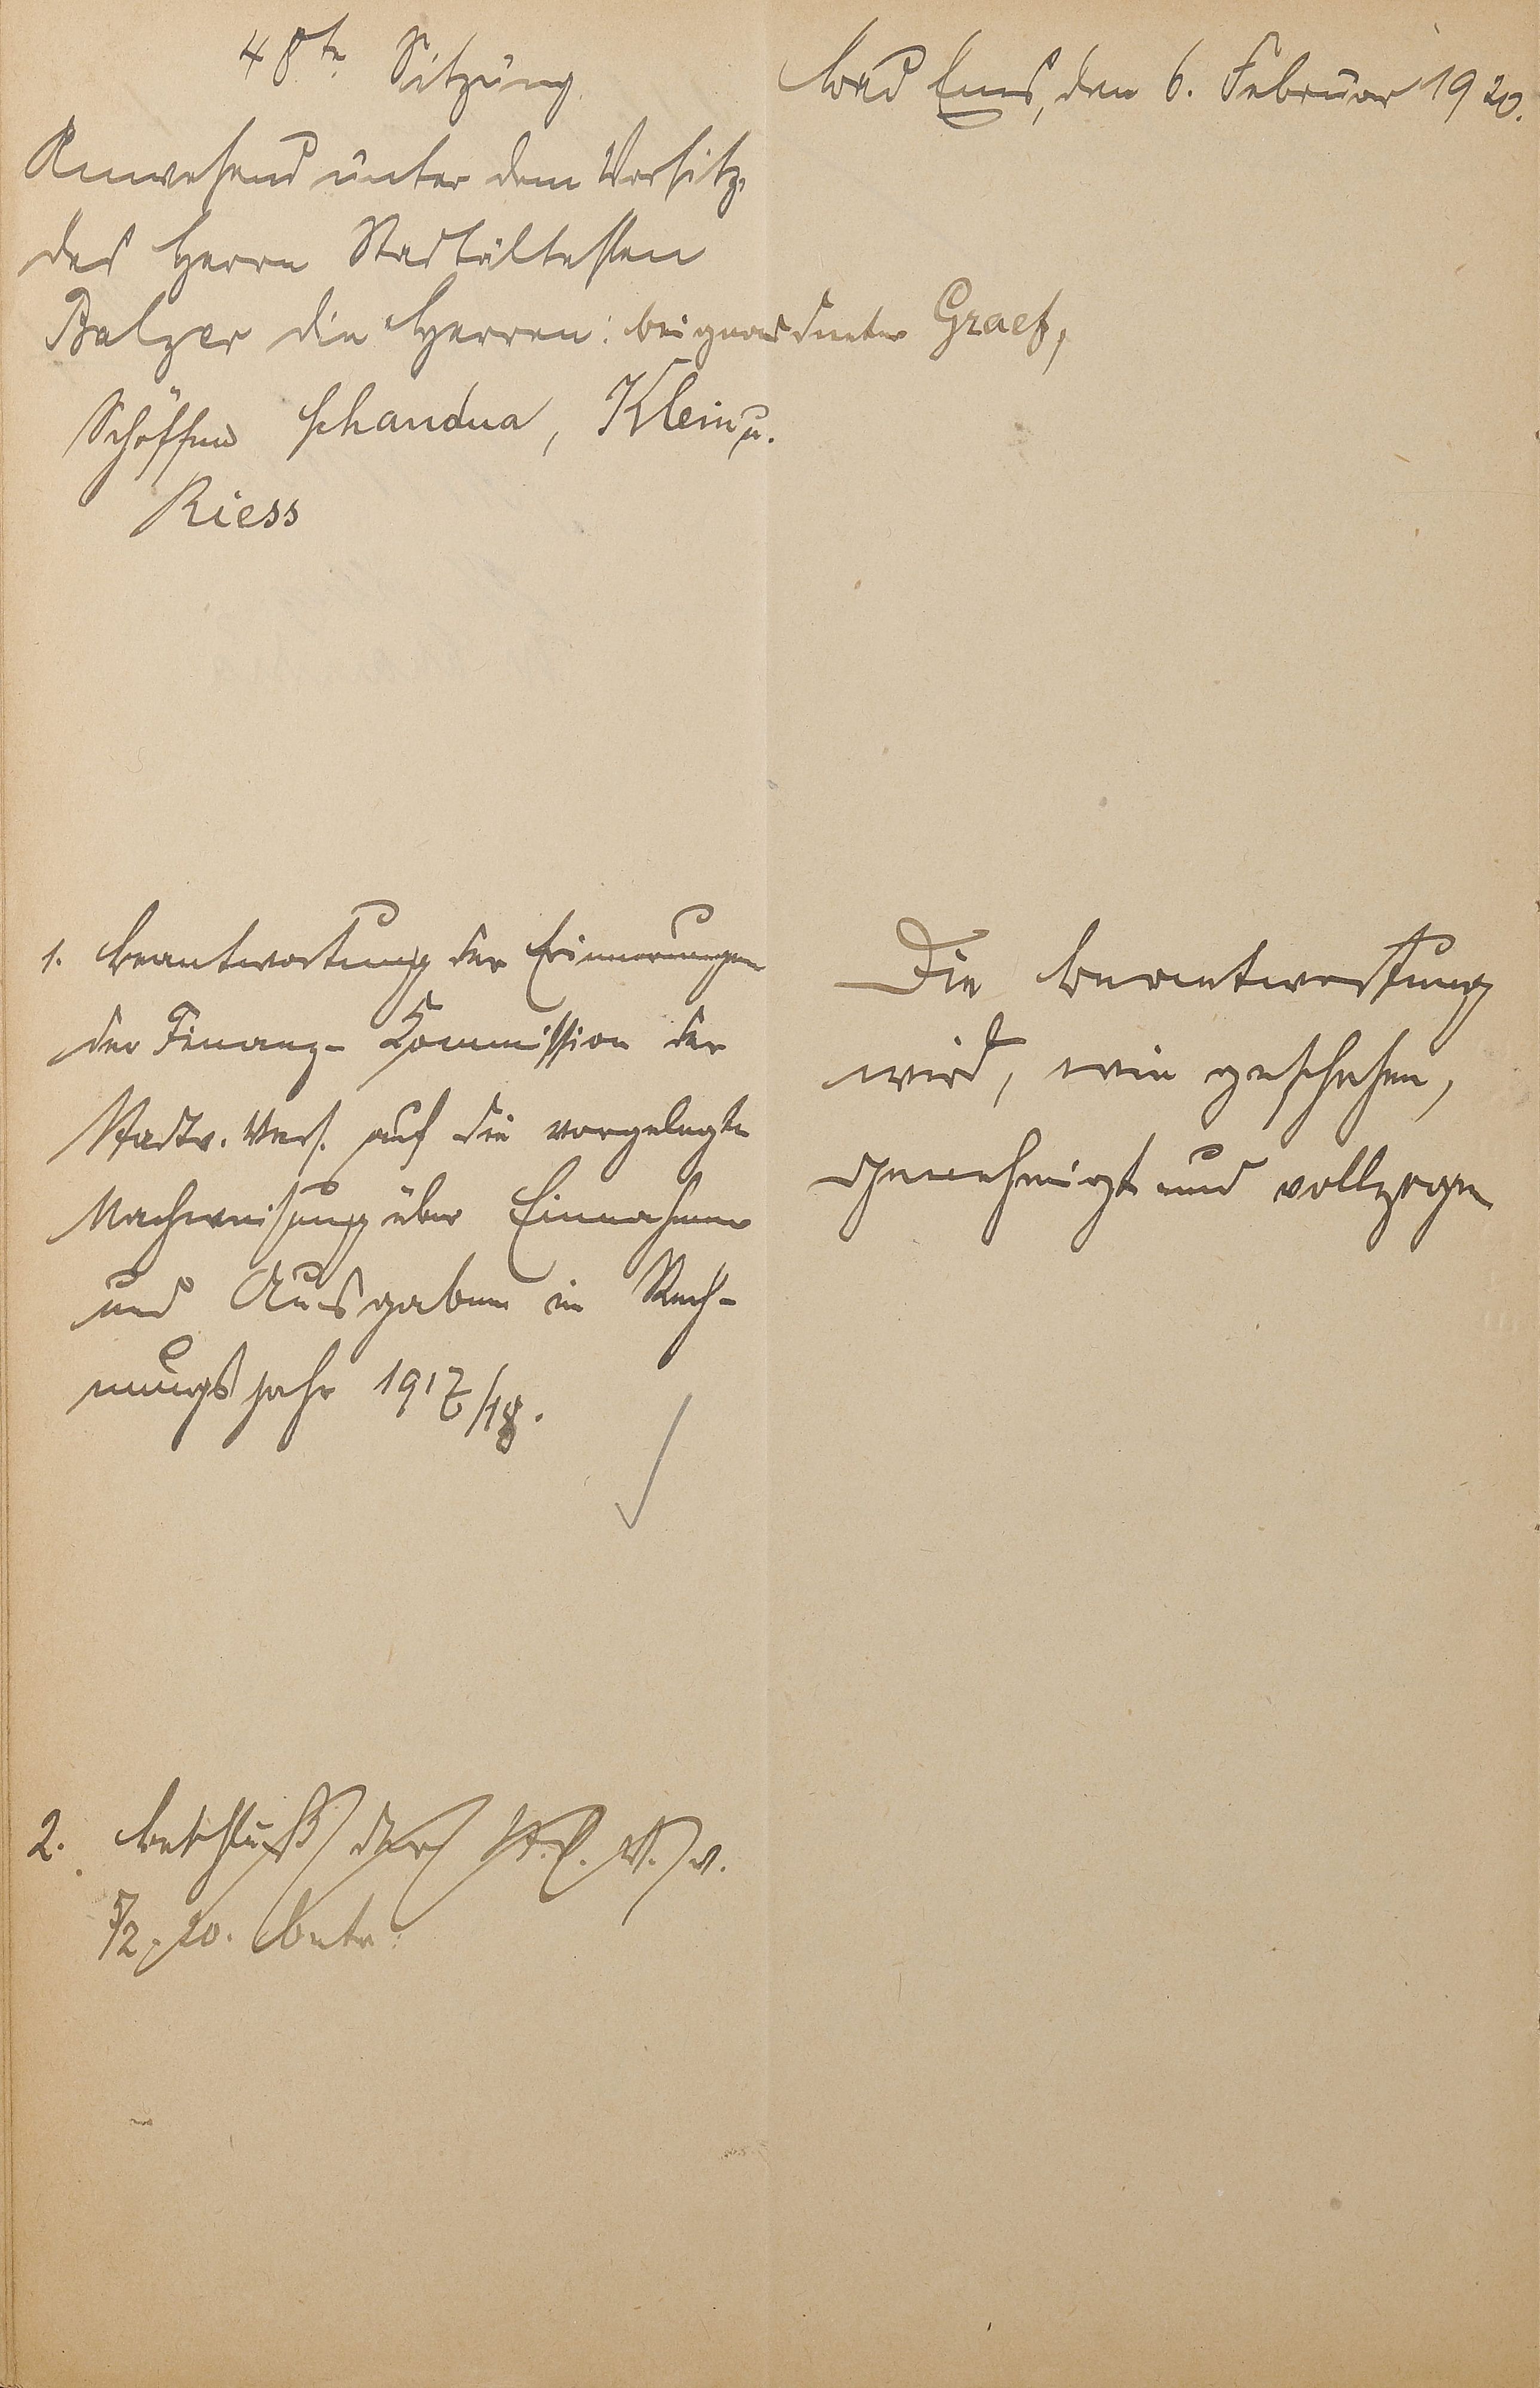 48te Sitzung.
Bad Ems, den 6. Februar 1920.
Anwesend unter dem Vorsitz
des Herrn Stadtältesten
Balzer die Herren: Beigeordneter Graef,
Schöffen Schandua, Klein u.
Riess
1. Beantwortung der Erinnerungen
der Finanz-Kommission der
Stadtv. Vers. auf die vorgelegte
Nachweisung über Einnahmen
und Ausgaben im Rech-
nungsjahr 1917/18.
Die Beantwortung
wird, wie geschehen,
genehmigt und vollzogen
2. Beschluß der St. V. V. v.
5/2.20. betr: